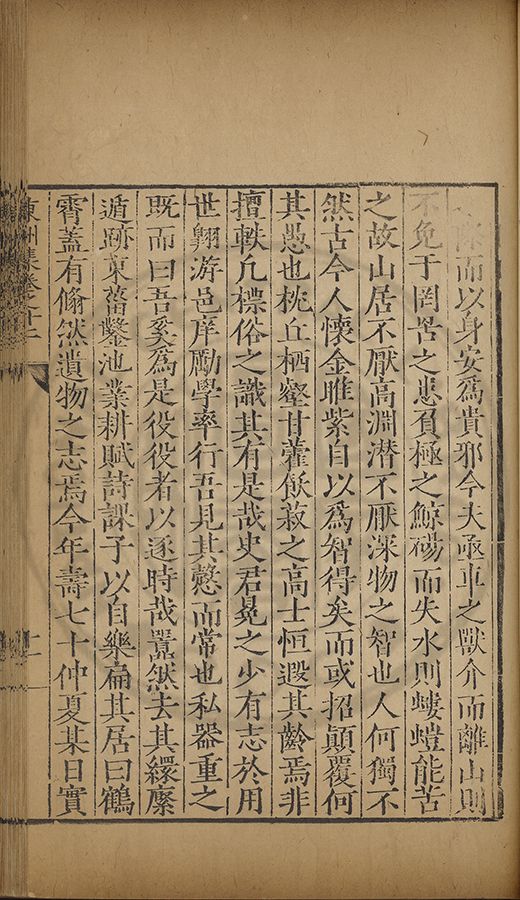 而以身安爲貴邪今夫函車之獸介而離山則
不免于罔罟之患負極之鯨碭而失水則螻螘能苦
之故山居不厭高淵潜不厭深物之智也人何獨不
然古今人懷金雎紫自以爲智得矣而或招顛覆何
其愚也枕丘栖壑甘藿飲菽之高士恒遐其齡焉非
擅軼凡標俗之識其有是哉史君晃之少有志於用
世翱游邑庠勵學率行吾見其憗而常也私器重之
既而曰吾奚爲是役役者以逐時哉嚣然去其縲縻
遁跡東菑鑿池業耕賦詩課子以自樂扁其居曰鶴
霄蓋有翛然遺物之志焉今年壽七十仲夏某日實
東洲集卷之十二